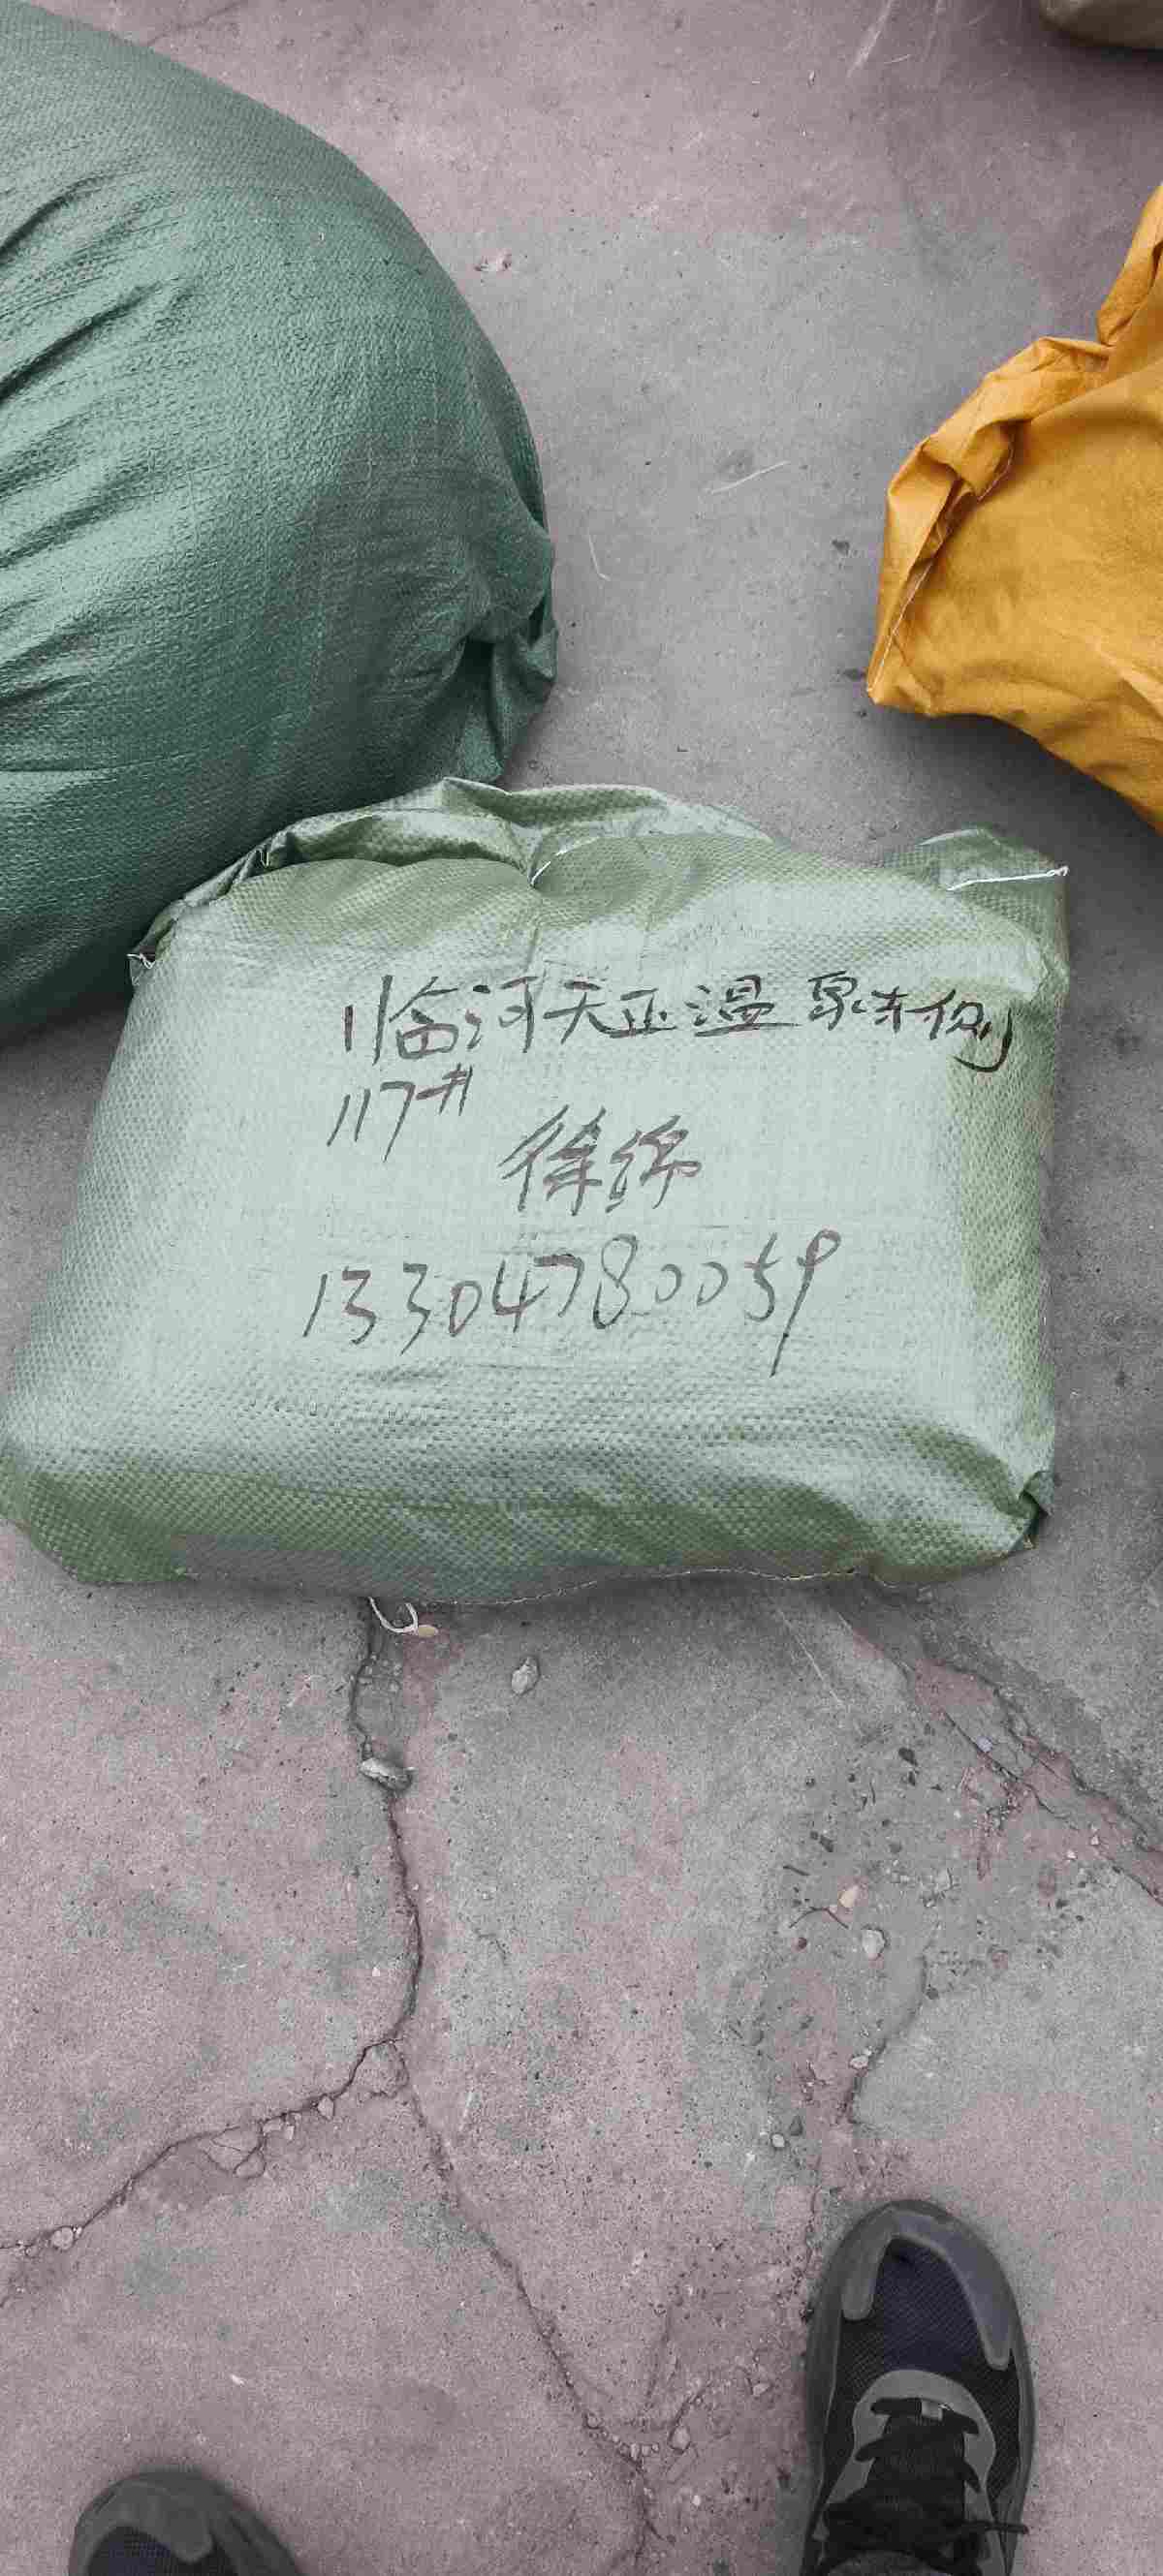 临河天正温泉东侧
117#
徐绵
13304780059